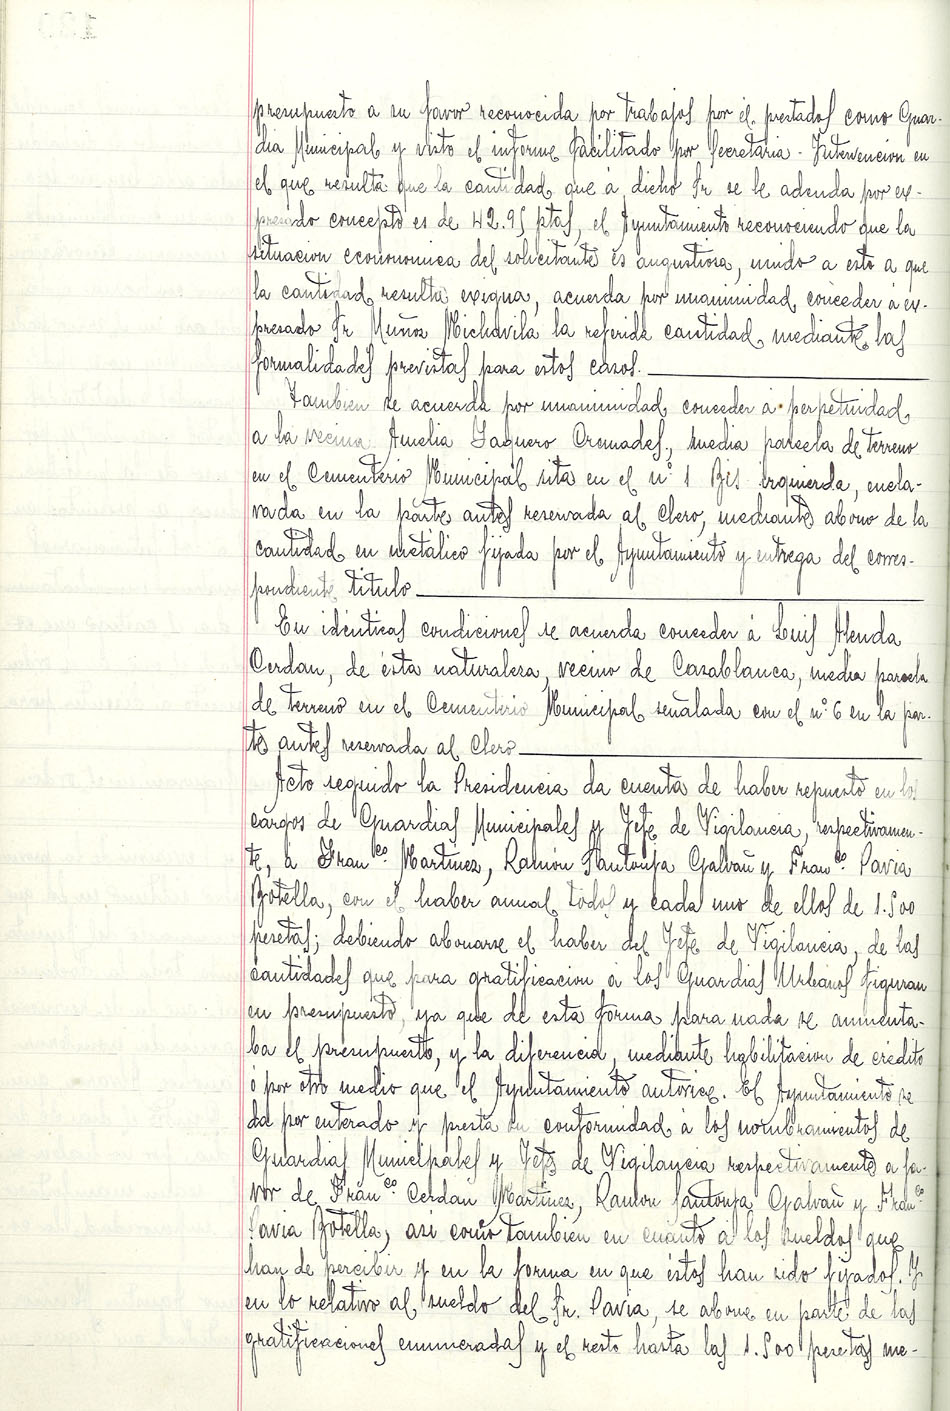 presupuesto a su favor reconocida por trabajos por él prestados como Guar-
dia Municipal y visto el informe facilitado por Secretaria-Intervención en
el que resulta que la cantidad que á dicho Sr se le adeuda por ex-
presado concepto es de 42.95 ptas, el Ayuntamiento reconociendo que la
situacion econonomica del solicitante es angustiosa, unido a esto a que
la cantidad resulta exigua, acuerda por unanimidad conceder á ex-
presado Sr Muñoz Michavila la referida cantidad mediante las
formalidades previstas para estos casos.
Tambien se acuerda por unanimidad conceder á perpetuidad
a la vecina Amelia Vaquero Cremades, media parcela de terreno
en el Cementerio Municipal sita en el nº 1 Bis izquierda, encla-
vada en la parte antes reservada al Clero, mediante abono de la
cantidad en metálico fijada por el Ayuntamiento y entrega del corres-
pondiente titulo
En idénticas condiciones se acuerda conceder á Luis Alenda
Cerdan, de ésta naturaleza, vecino de Casablanca, media parcela
de terreno en el Cementerio Municipal señalada con el nº 6 en la par-
te antes reservada al Clero
Acto seguido la Presidencia da cuenta de haber repuesto en los
cargos de Guardias Municipales y Jefe de Vigilancia, respectivamen-
te, á Franco. Martínez, Ramón Santonja Galvañ y Franco. Pavia
Botella, con el haber anual todos y cada uno de ellos de 1.500
pesetas; debiendo abonarse el haber del Jefe de Vigilancia, de las
cantidades que para gratificacion á los Guardias Urbanos figuran
en presupuesto, ya que de esta forma para nada se aumenta-
ba el presupuesto, y la diferencia, mediante habilitacion de crédito
ó por otro medio que el Ayuntamiento autorice. El Ayuntamiento se
da por enterado y presta su conformidad á los nombramientos de
Guardias Municipales y Jefe de Vigilancia respectivamente a fa-
vor de Franco. Cerdan Martínez, Ramon Santonja Galvañ y Franco.
Pavia Botella, asi como tambien en cuanto á los sueldos que
han de percibir y en la forma en que éstos han sido fijados. Y
en lo relativo al sueldo del Sr. Pavia, se abone en parte de las
gratificaciones enumeradas y el resto hasta las 1.500 pesetas me-